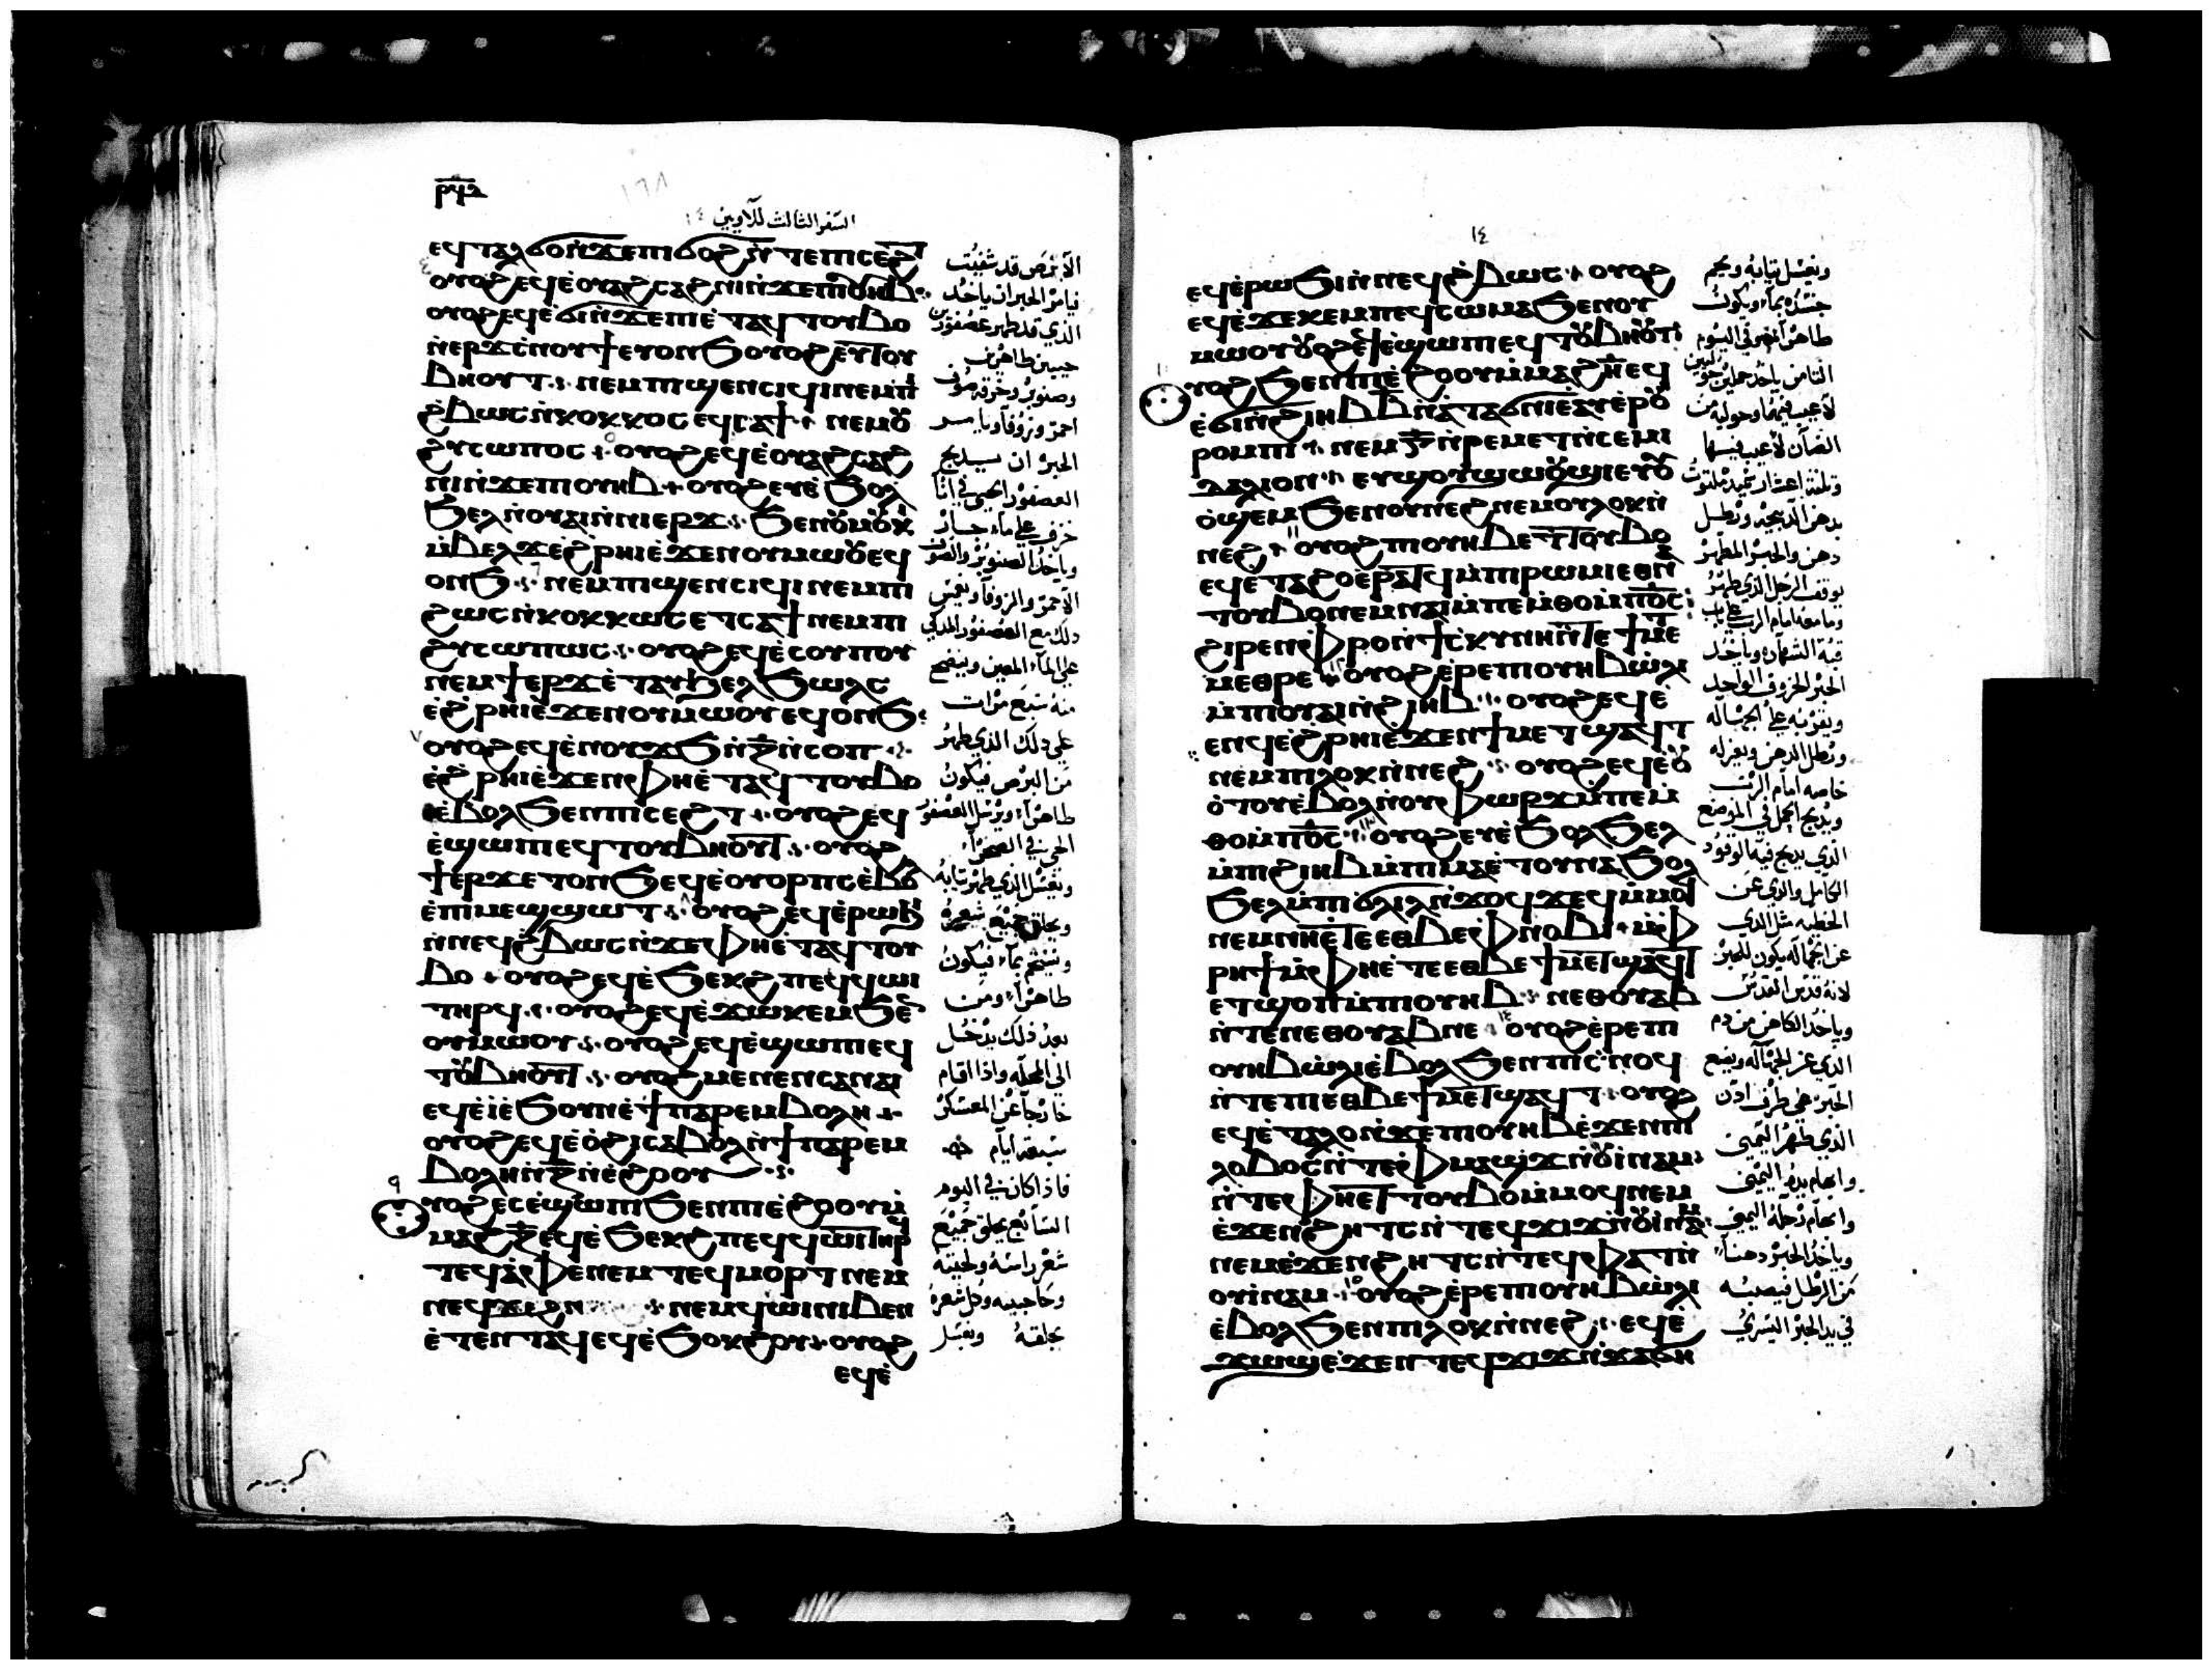 ⲣϥⲍ
السفر الثالث للاويين ١٤
ⲉϥⲧⲁⲗϭⲟ ⲛ̀ϫⲉ ⲡⲓϭⲟϩ ⲛ̀ⲧⲉ ⲡⲓⲥⲉϩⲧ
ⲟⲩⲟϩ ⲉϥⲉ̀ⲟⲩⲁϩⲥⲁϩⲛⲓ ⲛ̀ϫⲉ ⲡⲓⲟⲩⲏⲃ
ⲟⲩⲟϩ ⲉϥⲉ̀ϭⲓ ⲛ̀ϫⲉ ⲡⲓⲉ̀ⲧⲁϥⲧⲟⲩⲃⲟ
ⲟⲩⲟϩ ⲉⲩⲧⲟⲩ
ⲃⲏⲟⲩⲧ ⲛⲉⲙ ⲡⲓϣⲉⲛⲥⲓϥⲓ ⲛⲉⲙ ⲡⲓ
ϩ̀ⲃⲱⲥ ⲛ̀ⲕⲟⲕⲕⲟⲥ ⲉϥⲥⲁϯ ⲛⲉⲙ ⲟⲩ
ϩⲩⲥⲱⲡⲟⲥ ⲟⲩⲟϩ ⲉϥⲉ̀ⲟⲩⲁϩⲥⲁϩ
ⲛⲓ ⲛ̀ϫⲉ ⲡⲓⲟⲩⲏⲃ ⲟⲩⲟϩ ⲉⲩⲉ̀ϧⲟⲗ
ϧⲉⲗ ⲛ̀ⲟⲩⲓ̀ ⲛ̀ⲛⲓⲉⲣϫ ϧⲉⲛ ⲟⲩⲙⲟⲕⲓ
ⲙ̀ⲃⲉⲗϫ ⲉ̀ϩ̀ⲣⲏⲓ ⲉ̀ϫⲉⲛ ⲟⲩⲙⲱⲟⲩ ⲉϥ
ⲟⲛϧ ⲛⲉⲙ ⲡⲓϣⲉⲛⲥⲓϥⲓ ⲛⲉⲙ ⲡⲓ
ϩⲱⲥ ⲛ̀ⲕⲟⲕⲕⲱⲥ ⲉⲧⲥⲁϯ ⲛⲉⲙ ⲡⲓ
ϩⲩⲥⲱⲡⲱⲥ ⲟⲩⲟϩ ⲉϥⲉ̀ⲥⲟⲩⲡⲟⲩ
ⲛⲉⲙ ϯⲉⲣϫ ⲉ̀ⲧⲁⲩϧⲉⲗϧⲱⲗⲥ
ⲉ̀ϩ̀ⲣⲏⲓ ⲉ̀ϫⲉⲛ ⲟⲩⲙⲱⲟⲩ ⲉϥⲟⲛϧ
ⲟⲩⲟϩ ⲉϥⲉ̀ⲛⲟⲩϫϧ ⲛ̀ⲍ̅ ⲛ̀ⲥⲟⲡ
ⲉ̀ϩ̀ⲣⲏⲓ ⲉ̀ϫⲉⲛ ⲫⲏ ⲉ̀ⲧⲁϥⲧⲟⲩⲃⲟ
ⲉ̀ⲃⲟⲗ ϧⲉⲛ ⲡⲓⲥⲉϩⲧ ⲟⲩⲟϩ ⲉϥ
ⲉ̀ϣⲱⲡⲓ ⲉϥⲧⲟⲩⲃⲏⲟⲩⲧ ⲟⲩⲟϩ
ϯⲉⲣϫ ⲉⲧⲟⲛϧ ⲉϥⲉ̀ⲟⲩⲟⲣⲡⲥ ⲉ̀ⲃⲟⲗ
ⲉ̀ⲡⲓⲙⲉϣϣⲱⲧ ⲟⲩⲟϩ ⲉϥⲉ̀ⲣⲱϧⲓ
ⲛ̀ⲛⲉϥϩ̀ⲃⲱⲥ ⲛ̀ϫⲉ ⲫⲏ ⲉ̀ⲧⲁϥⲧⲟⲩ
ⲃⲟ ⲟⲩⲟϩ ⲉϥⲉ̀ϧⲉⲕϩ ⲡⲉϥϥⲱⲓ
ⲧⲏⲣϥ ⲟⲩⲟϩ ⲉϥⲉ̀ϫⲱⲕⲉⲙ ϧⲉⲛ
ⲟⲩⲙⲱⲟⲩ ⲟⲩⲟϩ ⲉϥⲉ̀ϣⲱⲡⲓ ⲉϥ
ⲧⲟⲩⲃⲏⲟⲩⲧ ⲟⲩⲟϩ ⲙⲉⲛⲉⲛⲥⲁ ⲛⲁⲓ
ⲉϥⲉ̀ⲓ̀ ⲉ̀ϧⲟⲩⲛ ⲉ̀ϯⲡⲁⲣⲉⲙⲃⲟⲗⲏ
ⲟⲩⲟϩ ⲉϥⲉ̀ⲟ̀ϩⲓ ⲥⲁⲃⲟⲗ ⲛ̀ϯⲡⲁⲣⲉⲙ
ⲃⲟⲗⲏ ⲛ̀ⲍ̅ ⲛ̀ⲉ̀ϩⲟⲟⲩ
ⲟⲩⲟϩ ⲉⲥⲉ̀ϣⲱⲡⲓ ϧⲉⲛ ⲡⲓⲉ̀ϩⲟⲟⲩ ⲙ̀
ⲙⲁϩ ⲍ̅ ⲉϥⲉ̀ϧⲉⲕϩ ⲡⲉϥϥⲱⲓ ⲧⲏⲣϥ
ⲧⲉϥⲁ̀ⲫⲉ ⲛⲉⲙ ⲧⲉϥⲙⲟⲣⲧ ⲛⲉⲙ
ⲛⲉⲙ ϥⲱⲓ ⲛⲓⲃⲉⲛ
ⲉ̀ⲧⲉⲛⲧⲁϥ ⲉϥⲉ̀ϧⲟⲕϩⲟⲩ ⲟⲩⲟϩ
ⲉϥⲉ̀
الابرص قد شفيت
فيامر الحبر ان ياخد
الذي قد طهر عصفورين
حيين طاهرين
وصنوبر وخرقة صوف
احمر وزوفا ويامر
الحبر ان يذبح
العصفور الحي في انا
خزف على ماء جار
وياخد الصنوبر والصوف
الاحمر والزوفا ويغمس
دلك مع العصفور المدكي
على الماء المعين وينضح
منه سبع مرات
على دلك الذي طهر
من البرص فيكون
طاهرا ويرسل العصفور
الحي في الصحرا
ويغسل الذي طهر ثيابه
ويحلق جميع شعره
ويستحم بماء فيكون
طاهرا ومن
بعد ذلك يدخل
الى المحله واذا اقام
خارجا عن المعسكر
سبعة ايام
فاذا كان في اليوم
السابع يحلق جميع
شعر راسه ولحيته
وحاجبيه وكل شعره
يحلقه ويغسل
١٤
ⲉϥⲉ̀ⲣⲱϧⲓ ⲛ̀ⲛⲉϥϩ̀ⲃⲱⲥ ⲟⲩⲟϩ
ⲉϥⲉ̀ϫⲉⲕⲉⲙ ⲡⲉϥⲥⲱⲙⲁ ϧⲉⲛ ⲟⲩ
ⲙⲱⲟⲩ ⲟⲩⲟϩ ⲉϥⲉ̀ϣⲱⲡⲓ ⲉϥⲧⲟⲩⲃⲏⲟⲩⲧ
ⲟⲩⲟϩ ϧⲉⲛ ⲡⲓⲉ̀ϩⲟⲟⲩ ⲙ̀ⲙⲁϩ ⲏ̅ ⲉϥ
ⲉ̀ϭⲓ ⲛ̀ϩⲓⲏⲃ ⲃ̅ ⲛ̀ⲁⲧⲁϭⲛⲓ ⲉⲩⲉⲣⲟⲩ
ⲣⲟⲙⲡⲓ ⲛⲉⲙ ⲅ̅ ⲛ̀ⲣⲉⲙⲉⲧ ⲛ̀ⲥⲉⲙⲓ
ⲇⲁⲗⲓⲟⲛ ⲉⲩϣⲟⲩϣⲱⲟⲩϣⲓ ⲉⲩⲟ
ⲟ̀ϣⲉⲙ ϧⲉⲛ ⲟⲩⲛⲉϩ ⲛⲉⲙ ⲟⲩⲗⲟⲕ ⲛ̀
ⲛⲉϩ ⲟⲩⲟϩ ⲡⲓⲟⲩⲏⲃ ⲉⲧⲧⲟⲩⲃⲟ
ⲉϥⲉ̀ⲧⲁϩⲟ ⲉ̀ⲣⲁⲧϥ ⲙ̀ⲡⲓⲣⲱⲙⲓ ⲉⲑⲛⲁ
ⲧⲟⲩⲃⲟ ⲛⲉⲙ ⲛⲁⲓ ⲙ̀ⲡⲉⲙ̀ⲑⲟ ⲙ̀ⲡⲟ̅ⲥ̅
ϩⲓⲣⲉⲛ ⲫⲣⲟ ⲛ̀ϯⲥⲕⲩⲛⲏ ⲛ̀ⲧⲉ ϯⲙⲉⲧ
ⲙⲉⲑⲣⲉ ⲟⲩⲟϩ ⲉ̀ⲣⲉ ⲡⲓⲟⲩⲏⲃ ⲱ̀ⲗⲓ
ⲙ̀ⲡⲓⲟⲩⲁⲓ ⲛ̀ϩⲓⲏⲃ ⲟⲩⲟϩ ⲉϥⲉ̀
ⲉⲛϥ ⲉ̀ϩ̀ⲣⲏⲓ ⲉ̀ϫⲉⲛ ϯⲙⲉⲧϣⲁϥⲧ
ⲛⲉⲙ ⲡⲓⲗⲟⲕ ⲛ̀ⲛⲉϩ ⲟⲩⲟϩ ⲉϥⲉ̀ⲟⲩ
ⲟ̀ⲧⲟⲩ ⲉ̀ⲃⲟⲗ ⲛ̀ⲟⲩⲫⲱⲣϫ ⲙ̀ⲡⲉⲙ̀
ⲑⲟ ⲙ̀ⲡⲟ̅ⲥ̅ ⲟⲩⲟϩ ⲉⲩⲉ̀ϧⲟⲗϧⲉⲗ
ⲙ̀ⲡⲓϩⲓⲏⲃ ⲙ̀ⲡⲓⲙⲁ ⲉ̀ⲧⲟⲩⲛⲁϧⲟⲗ
ϧⲉⲗ ⲙ̀ⲡⲓϭⲗⲓⲗ
ⲛⲉⲙ ⲛⲏ ⲉ̀ⲧⲉ ⲉⲑⲃⲉ ⲫⲛⲟⲃⲓ ⲙ̀ⲫ
ⲣⲏϯ ⲙ̀ⲫⲏ ⲉ̀ⲧⲉ ⲉⲑⲃⲉ ϯⲙⲉⲧϣⲁϥⲧ
ⲉⲧϣⲟⲡ ⲙ̀ⲡⲓⲟⲩⲏⲃ ⲛⲉⲑⲟⲩⲁⲃ
ⲛ̀ⲧⲉ ⲛⲉⲑⲟⲩⲁⲃ ⲛⲉ ⲟⲩⲟϩ ⲉ̀ⲣⲉ ⲡⲓ
ⲟⲩⲏⲃ ⲱ̀ⲗⲓ ⲉ̀ⲃⲟⲗ ϧⲉⲛ ⲡⲓⲥ̀ⲛⲟϥ
ⲛ̀ⲧⲉ ⲡⲓⲉⲑⲃⲉ ϯⲙⲉⲧϣⲁϥⲧ ⲟⲩⲟϩ
ⲉϥⲉ̀ⲧⲁⲗⲟ ⲛ̀ϫⲉ ⲡⲓⲟⲩⲏⲃ ⲉ̀ϫⲉⲛ ⲡⲓ
ⲗⲟⲃⲟⲥ ⲛ̀ⲧⲉ ⲫⲙⲁϣϫ ⲛ̀ⲟⲩⲓⲛⲁⲙ
ⲛ̀ⲧⲉ ⲫⲏ ⲉⲧⲧⲟⲩⲃⲟ ⲙ̀ⲙⲟϥ ⲛⲉⲙ
ⲉ̀ϫⲉⲛ ϩⲏⲧⲥ ⲛ̀ⲧⲉϥϫⲓϫ ⲛ̀ⲟⲩⲓⲛⲁⲙ
ⲛⲉⲙ ⲉ̀ϫⲉⲛ ϩⲏⲧⲥ ⲛ̀ⲧⲉϥⲫⲁⲧ ⲛ̀
ⲟⲩⲓⲛⲁⲙ ⲟⲩⲟϩ ⲉ̀ⲣⲉ ⲡⲓⲟⲩⲏⲃ ⲱ̀ⲗⲓ
ⲉ̀ⲃⲟⲗ ϧⲉⲛ ⲡⲓⲗⲟⲕ ⲛ̀ⲛⲉϩ ⲉϥⲉ̀
ϫⲱϣ ⲉ̀ϫⲉⲛ ⲧⲉϥϫⲓϫ ⲛ̀ϫⲁϭⲏ
ويغسل ثيابه ويحم
جسده بماء ويكون
طاهرا
الثامن ياخد حملين حوليين
لاعيب فيهما وحوليه من
الضان لاعيب فيها
وثلثة اعشار سميد ملتوت
بدهن الدبيحه ورطل
دهن والحبر المطهر
يوقف الرجل الذي طهر
وما معه امام الرب على باب
قبة الشهاده وياخد
الحبر الخروف الواحد
ويقربه على الجهاله
ورطل الدهن ويعزله
خاصه امام الرب
ويدبح الحمل في الموضع
الذي يدبح فيه الوقود
الكامل والذي عن
الخطيه مثل الذي
عن الجهاله يكون للحبر
لانه قدس القدس
وياخد الكاهن من دم
الذي عن الجهاله ويضع
الحبر على طرف ادن
الذي طهر اليمنى
وابهام يده اليمنى
وابهام رجله اليمنى
وياخد الحبر دهنا
من الرطل فيصبه
في يد الحبر اليسرى